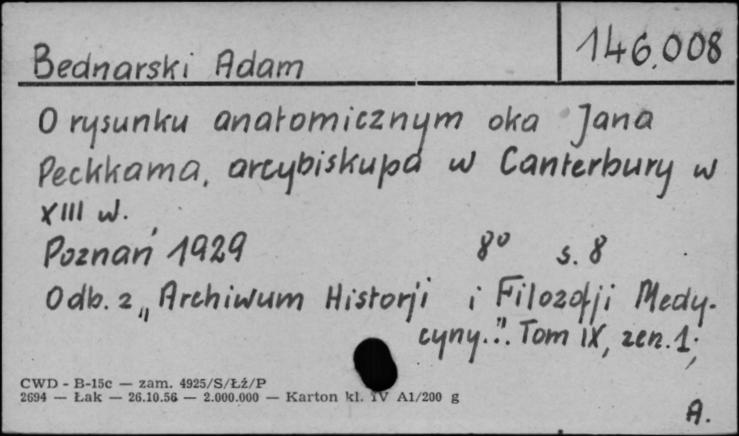 Bednarski Adam
146.008
O rysunku anatomicznym oka Jana
Peckkama, arcybiskupa w Canterbury w
XIII w.
Poznań 1929 8° s. 8
Odb. z „Archiwum Historji i Filozofji Medy-
cyny..." Tom IX, zen. 1;
CWD - B-15c — zam. 4925/S/Łź/P
2694 — Łak — 26.10.56 — 2.000.000 — Karton kl. IV A1/200 g
A.